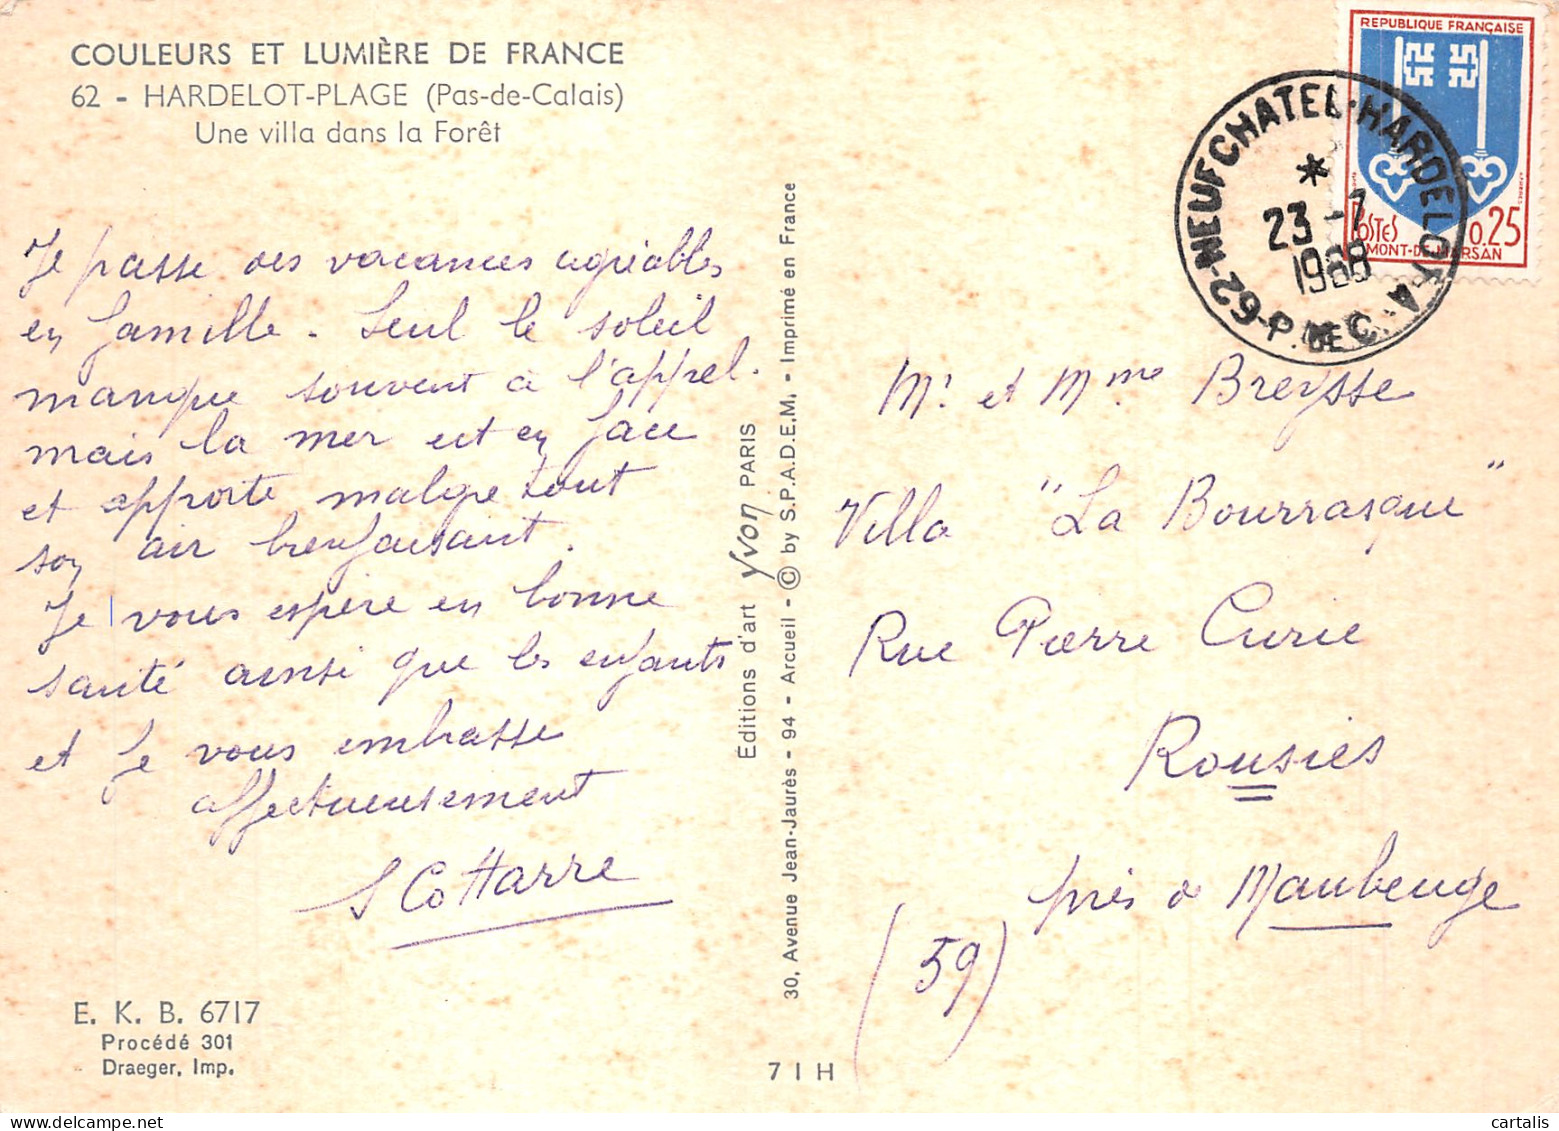 COULEURS ET LUMIÈRE DE FRANCE
62 - HARDELOT-PLAGE (Pas-de-Calais)
Une villa dans la Forêt
Je passe des vacances agréables
en famille. Seul le soleil
manque souvent à l'appel.
mais la mer est en face
et apporte malgré tout
son air bienfaisant.
Je vous espère en bonne
santé ainsi que les enfants
et je vous embrasse
affectueusement
S Cottarre
E. K. B. 6717
Procédé 301
Draeger, Imp.
Editions d'art Yvon PARIS
30, Avenue Jean-Jaurès - 94 - Arcueil - © by S.P.A.D.E.M. - Imprimé en France
7 I H
REPUBLIQUE FRANÇAISE
POSTES 0.25
MONT-DE-MARSAN
62-NEUFCHATEL-HARDELOT A
P. DE C.
*
23 -7
1968
Mr et Mme Breysse
Villa "La Bourrasque"
Rue Pierre Curie
Rousies
près de Maubeuge
(59)
cartalis